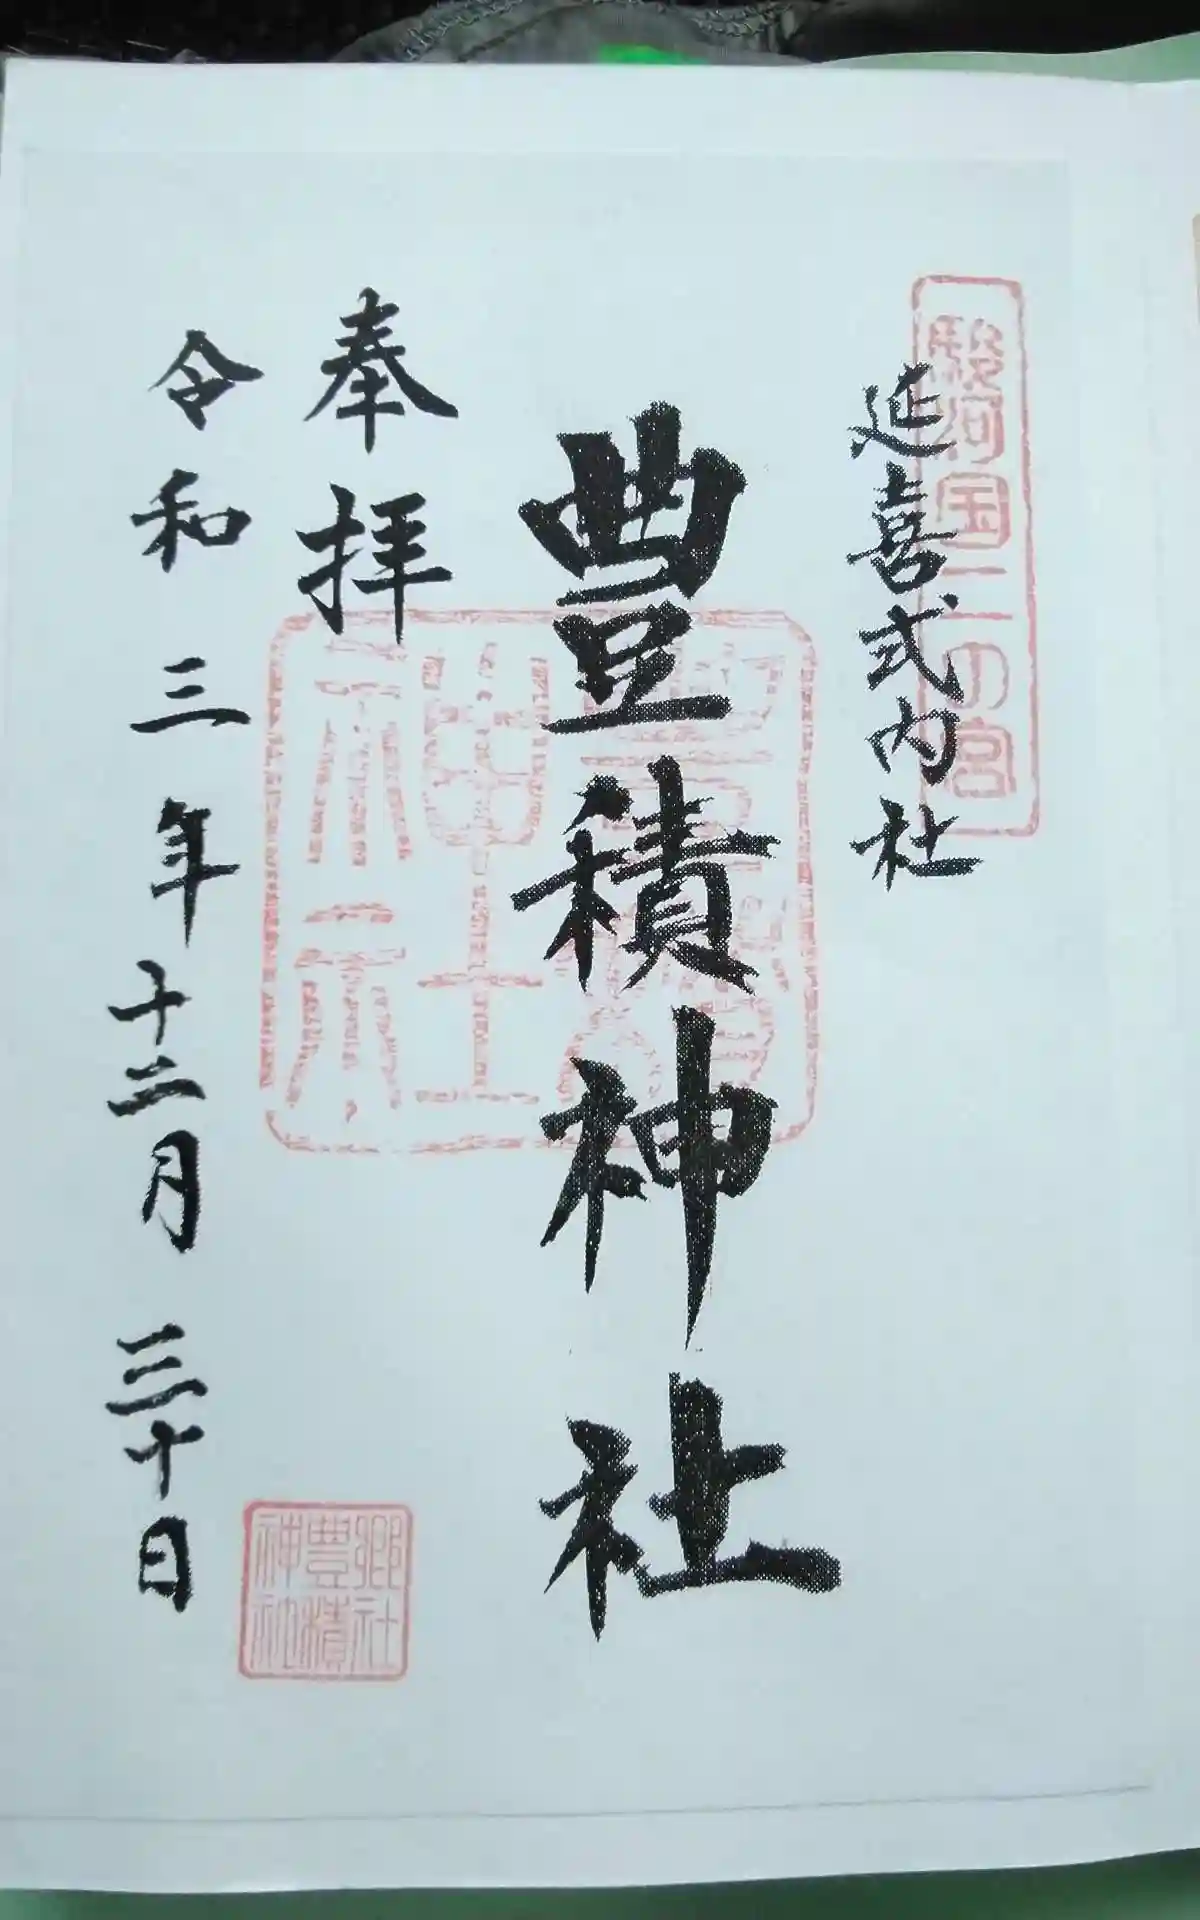 駿河国二の宮
延喜式内社
豊積神社
奉拝
令和三年十二月三十日
郷社
豊積
神社